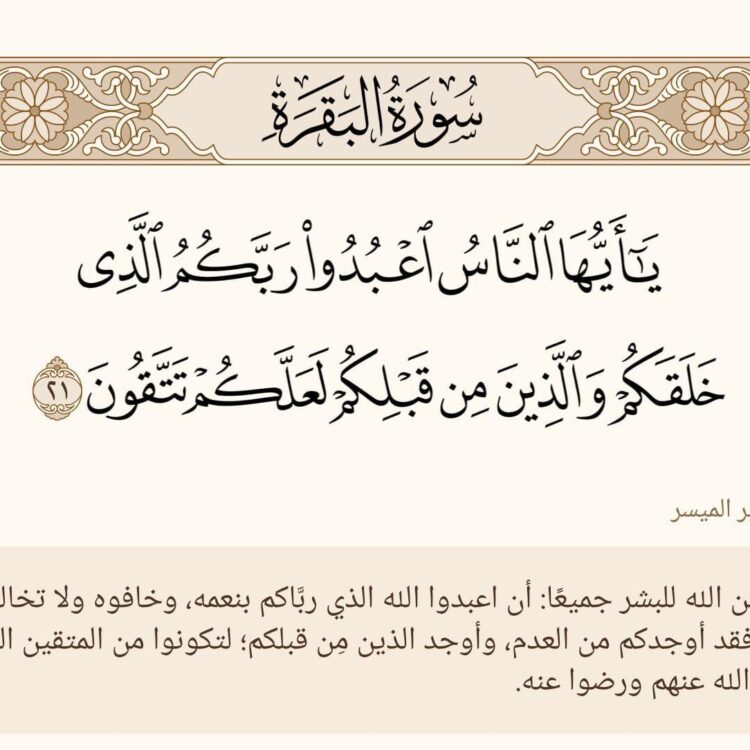 سُورَةُ البَقَرَةِ
يَٰٓأَيُّهَا ٱلنَّاسُ ٱعۡبُدُواْ رَبَّكُمُ ٱلَّذِي
خَلَقَكُمۡ وَٱلَّذِينَ مِن قَبۡلِكُمۡ لَعَلَّكُمۡ تَتَّقُونَ ٢١
الميسر
الله للبشر جميعًا: أن اعبدوا الله الذي ربَّاكم بنعمه، وخافوه ولا
فقد أوجدكم من العدم، وأوجد الذين مِن قبلكم؛ لتكونوا من المتقين
الله عنهم ورضوا عنه.